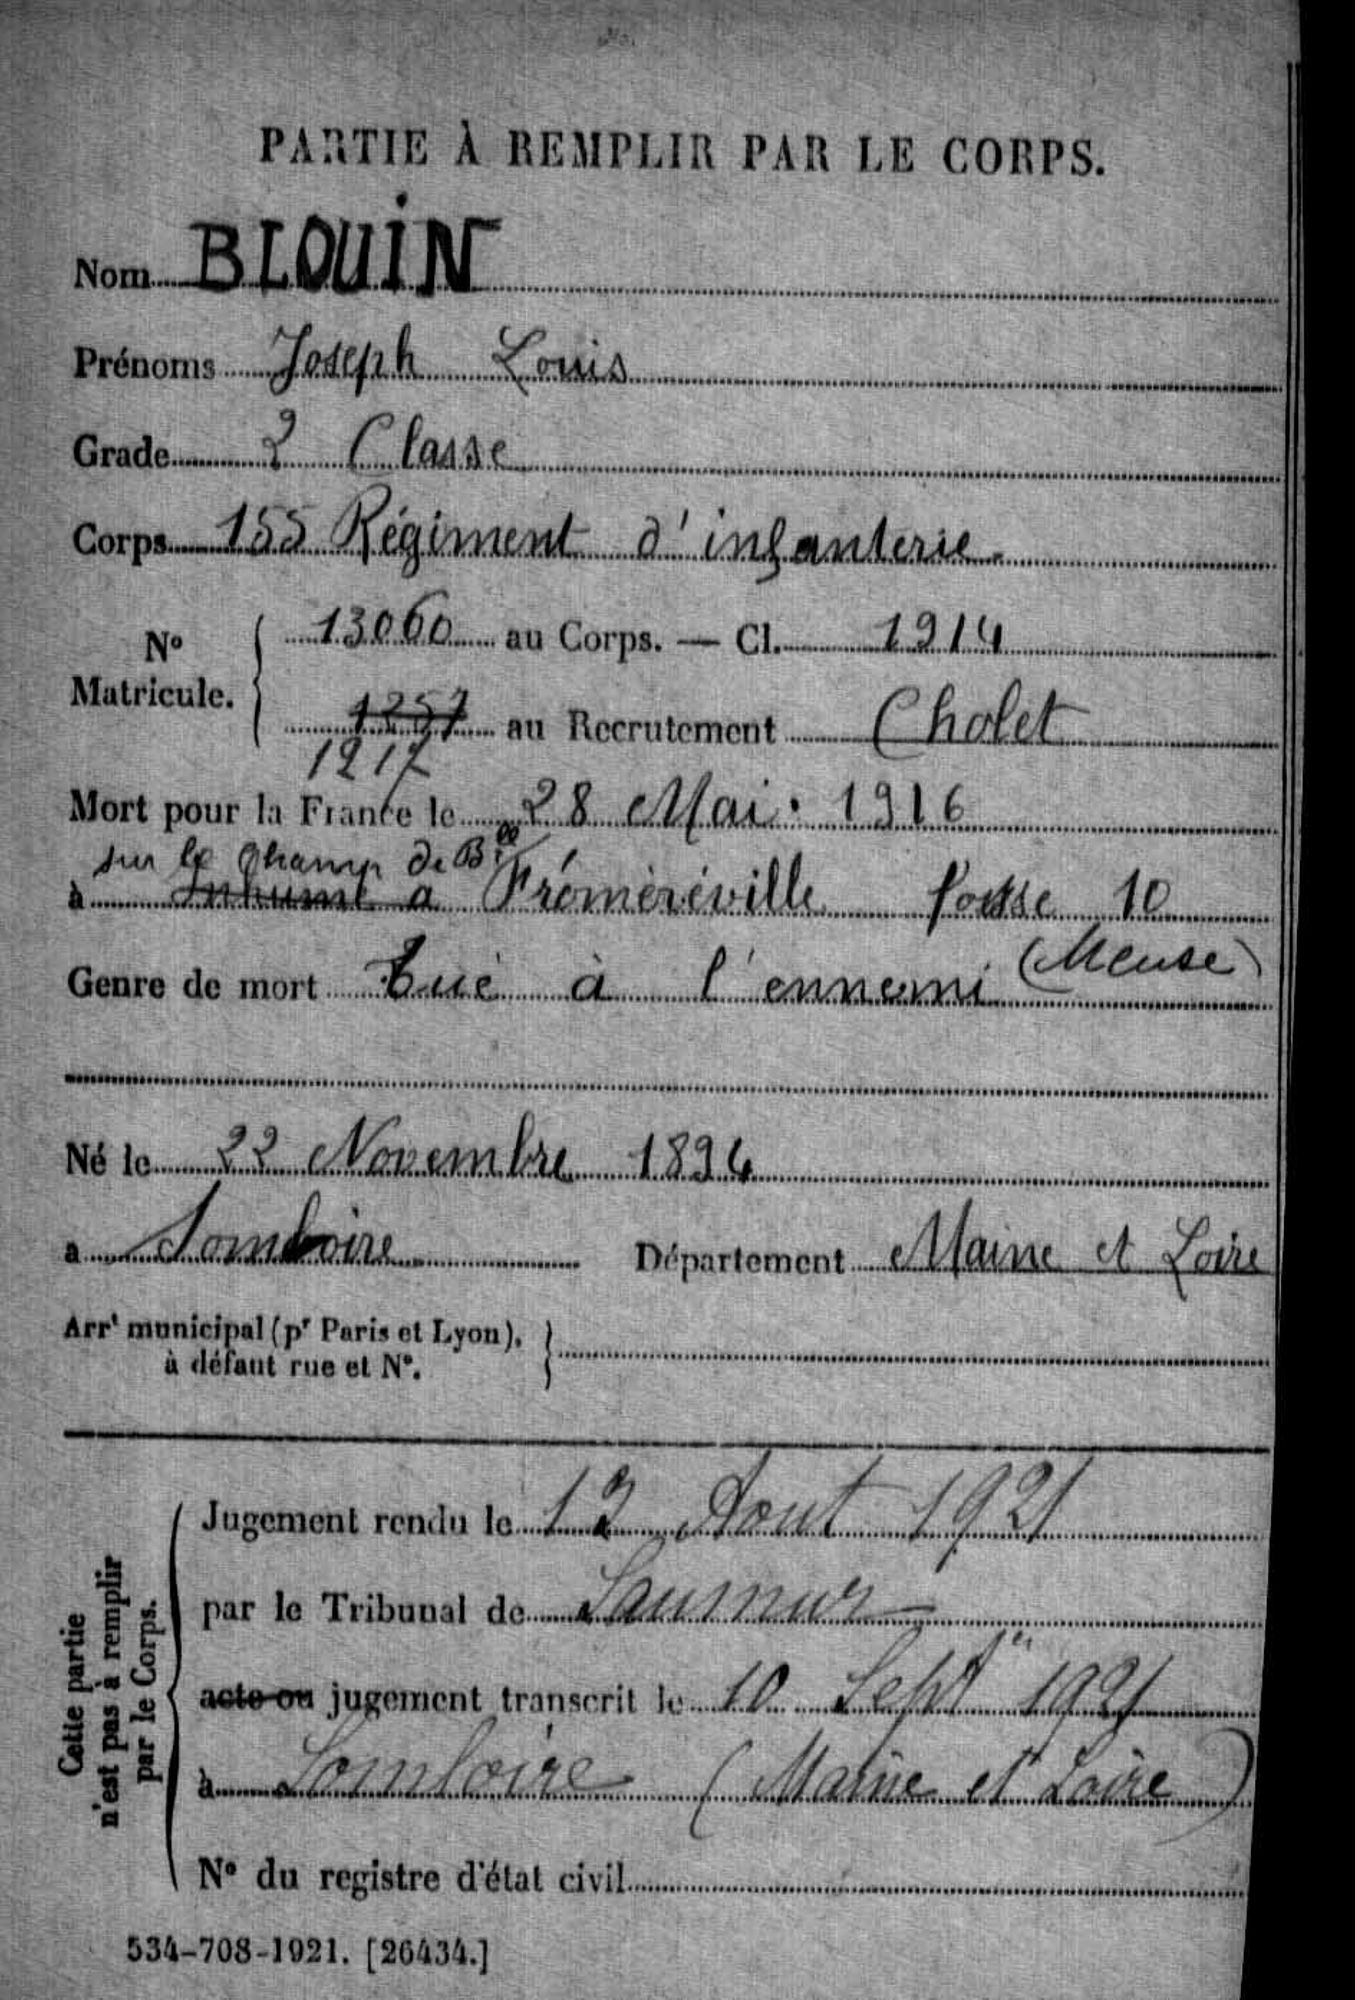 PARTIE À REMPLIR PAR LE CORPS.
Nom BLOUIN
Prénoms Joseph Louis
Grade 2 Classe
Corps 155 Régiment d'infanterie
N° Matricule. { 13060 au Corps. — Cl. 1914
1257 au Recrutement Cholet
1217
Mort pour la France le 28 Mai 1916
sur le champ de Blle
à Inhumé a Froméréville fosse 10
(Meuse)
Genre de mort Tué à l'ennemi
Né le 22 Novembre 1894
a Somloire Département Maine et Loire
Arrt municipal (pr Paris et Lyon), à défaut rue et N°. }
Cette partie n'est pas à remplir par le Corps. {
Jugement rendu le 12 Aout 1921
par le Tribunal de Saumur
acte ou jugement transcrit le 10 Sept 1921
à Somloire (Maine et Loire)
N° du registre d'état civil
534-708-1921. [26434.]